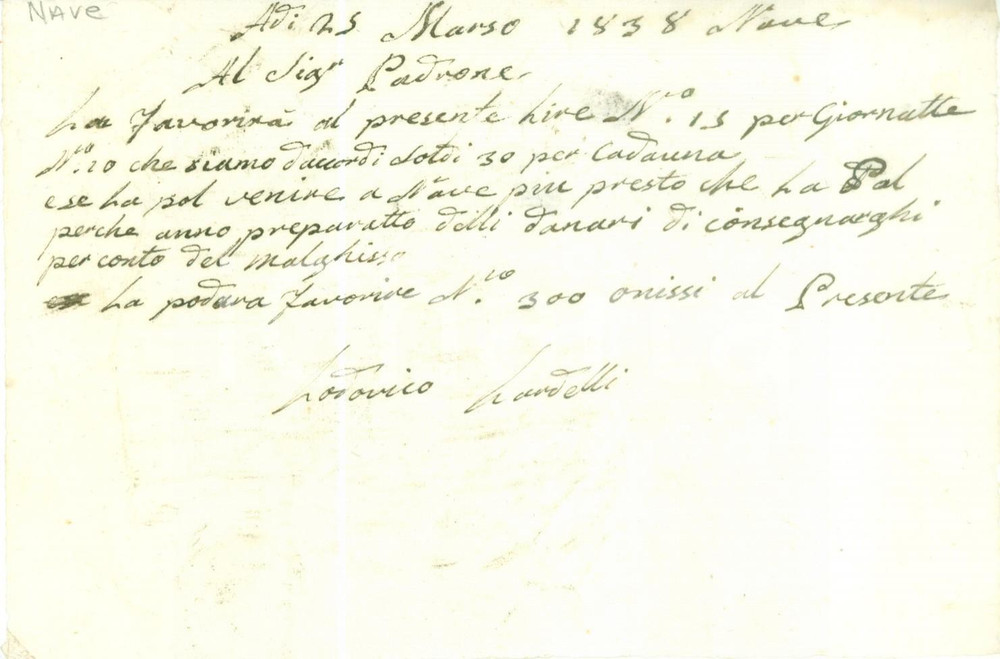 NAVE
Adi 25 Marso 1838 Nave
Al Sigr Padrone
La Favorirà al presente Lire N.ro 15 per Giornatte
N.ro 10 che siamo dacordi Soldi 30 per Cadauna
e se La pol venire a Nave piu presto che La Pol
perche anno preparatto delli danari di consegnarghi
per conto del malghisso
La podara Favorire N.ro 300 onissi al Presente
Lodovico Lardelli